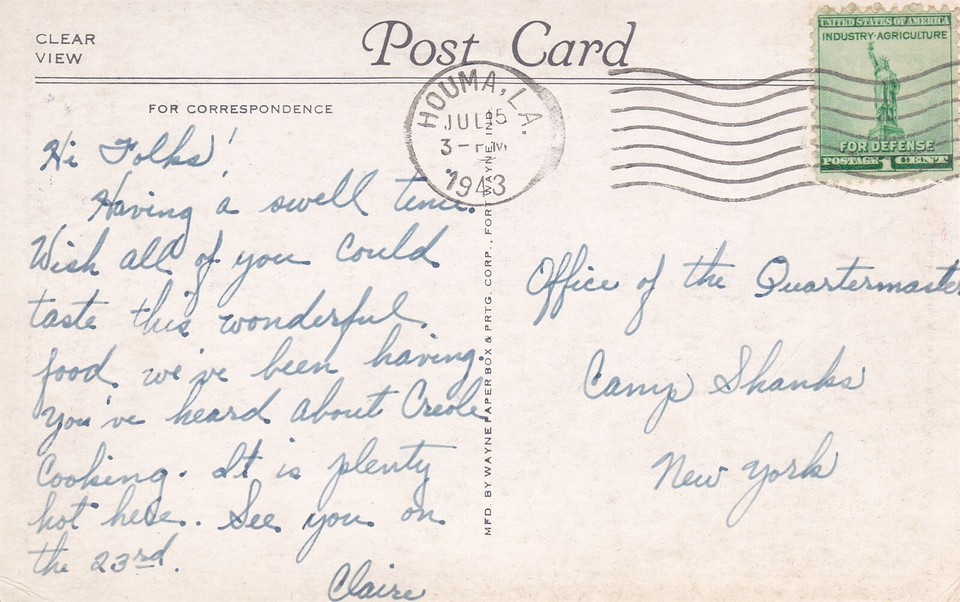 CLEAR
VIEW
Post Card
UNITED STATES OF AMERICA
INDUSTRY·AGRICULTURE
FOR DEFENSE
POSTAGE 1 CENT
HOUMA, LA.
JUL 5
3 - PM
1943
FOR CORRESPONDENCE
Hi Folks!
Having a swell time.
Wish all of you could
taste this wonderful
food we've been having.
You've heard about Creole
Cooking. It is plenty
hot here. See you on
the 23rd.
Claire
MFD. BY WAYNE PAPER BOX & PRTG. CORP., FORT WAYNE, IND.
Office of the Quartermaster
Camp Shanks
New York